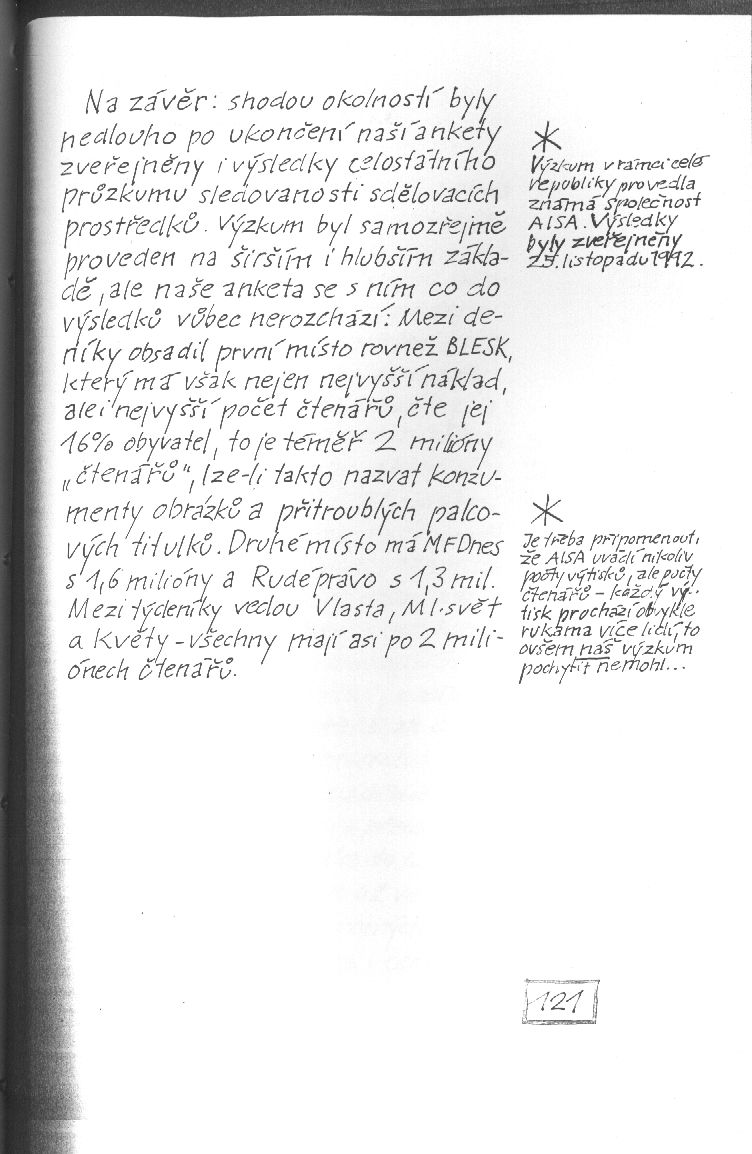 Na závěr: shodou okolností byly
nedlouho po ukončení naší ankety
zveřejněny i výsledky celostátního
průzkumu sledovanosti sdělovacích
prostředků. Výzkum byl samozřejmě
proveden na širším i hlubším zákla-
dě, ale naše anketa se s ním co do
výsledků vůbec nerozchází: Mezi de-
níky obsadil první místo rovněž BLESK,
který má však nejen nejvyšší náklad,
ale i nejvyšší počet čtenářů, čte jej
16% obyvatel, to je téměř 2 milióny
„čtenářů", lze-li takto nazvat konzu-
menty obrázků a přitroublých palco-
vých titulků. Druhé místo má MFDnes
s 1,6 milióny a Rudé právo s 1,3 mil.
Mezi týdeníky vedou Vlasta, Ml. svět
a Květy - všechny mají asi po 2 mili-
ónech čtenářů.
*
Výzkum v rámci celé
republiky provedla
známá společnost
AISA. Výsledky
byly zveřejněny
25. listopadu 1992.
*
Je třeba připomenout,
že AISA uvádí nikoliv
počty výtisků, ale počty
čtenářů - každý vý-
tisk prochází obvykle
rukama více lidí, to
ovšem náš výzkum
pochytit nemohl...
121